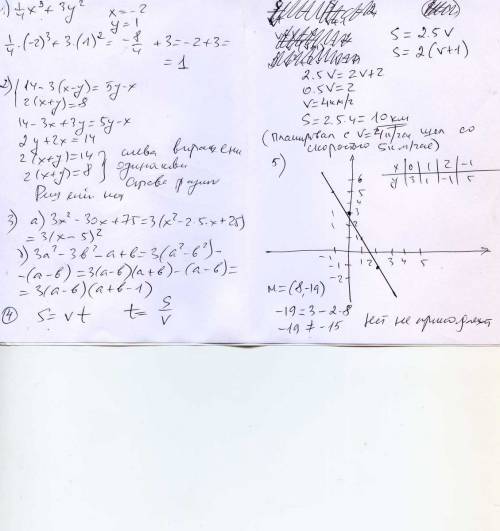 1) 1/4 x³ + 3y²   x = -2
y = 1
1/4 · (-2)³ + 3·(1)² = -8/4 + 3 = -2+3 =
= 1
2) 14-3(x-y) = 5y-x
2(x+y) = 8
14-3x+3y = 5y-x
2y+2x = 14
2(x+y) = 14
2(x+y) = 8
слева
одинаковы
справа
Решений нет
3) а) 3x² - 30x + 75 = 3(x² - 2·5·x + 25)
= 3(x-5)²
3a² - 3b² - a + b = 3(a² - b²) -
-(a-b) = 3(a-b)(a+b) - (a-b) =
= 3(a-b)(a+b-1)
4 S = vt   t = S/V
S = 2.5V
S = 2(V+1)
2.5V = 2V+2
0.5V = 2
V = 4км/ч
S = 2.5·4 = 10км
(планировал с V=4км/ч шел со
скоростью 5км/час)
5)
x 0 1 2 -1
y 3 1 -1 5
6
5
4
3
1 1
-1 1 2 3 4 5
-1
-2
M = (8,-19)
-19 = 3 - 2·8
-19 ≠ -15   нет не